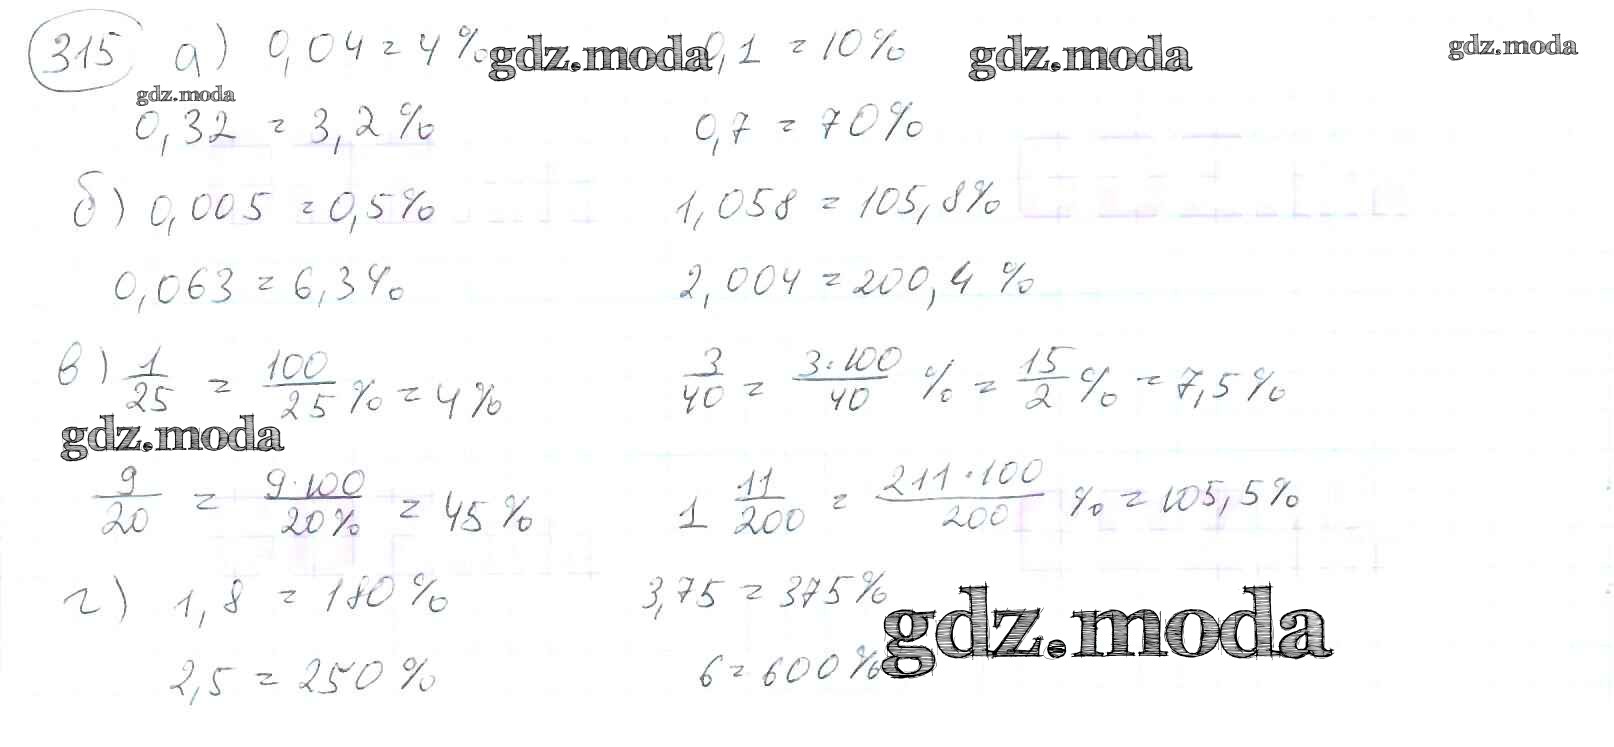 315 а) 0,04 = 4% gdz.moda 0,1 = 10% gdz.moda gdz.moda
gdz.moda
0,32 = 3,2% 0,7 = 70%
б) 0,005 = 0,5% 1,058 = 105,8%
0,063 = 6,3% 2,004 = 200,4 %
в) 1/25 = 100/25 % = 4% 3/40 = 3·100/40 % = 15/2 % = 7,5%
gdz.moda
9/20 = 9·100/20% = 45% 1 11/200 = 211·100/200 % = 105,5%
г) 1,8 = 180% 3,75 = 375%
gdz.moda
2,5 = 250% 6 = 600%